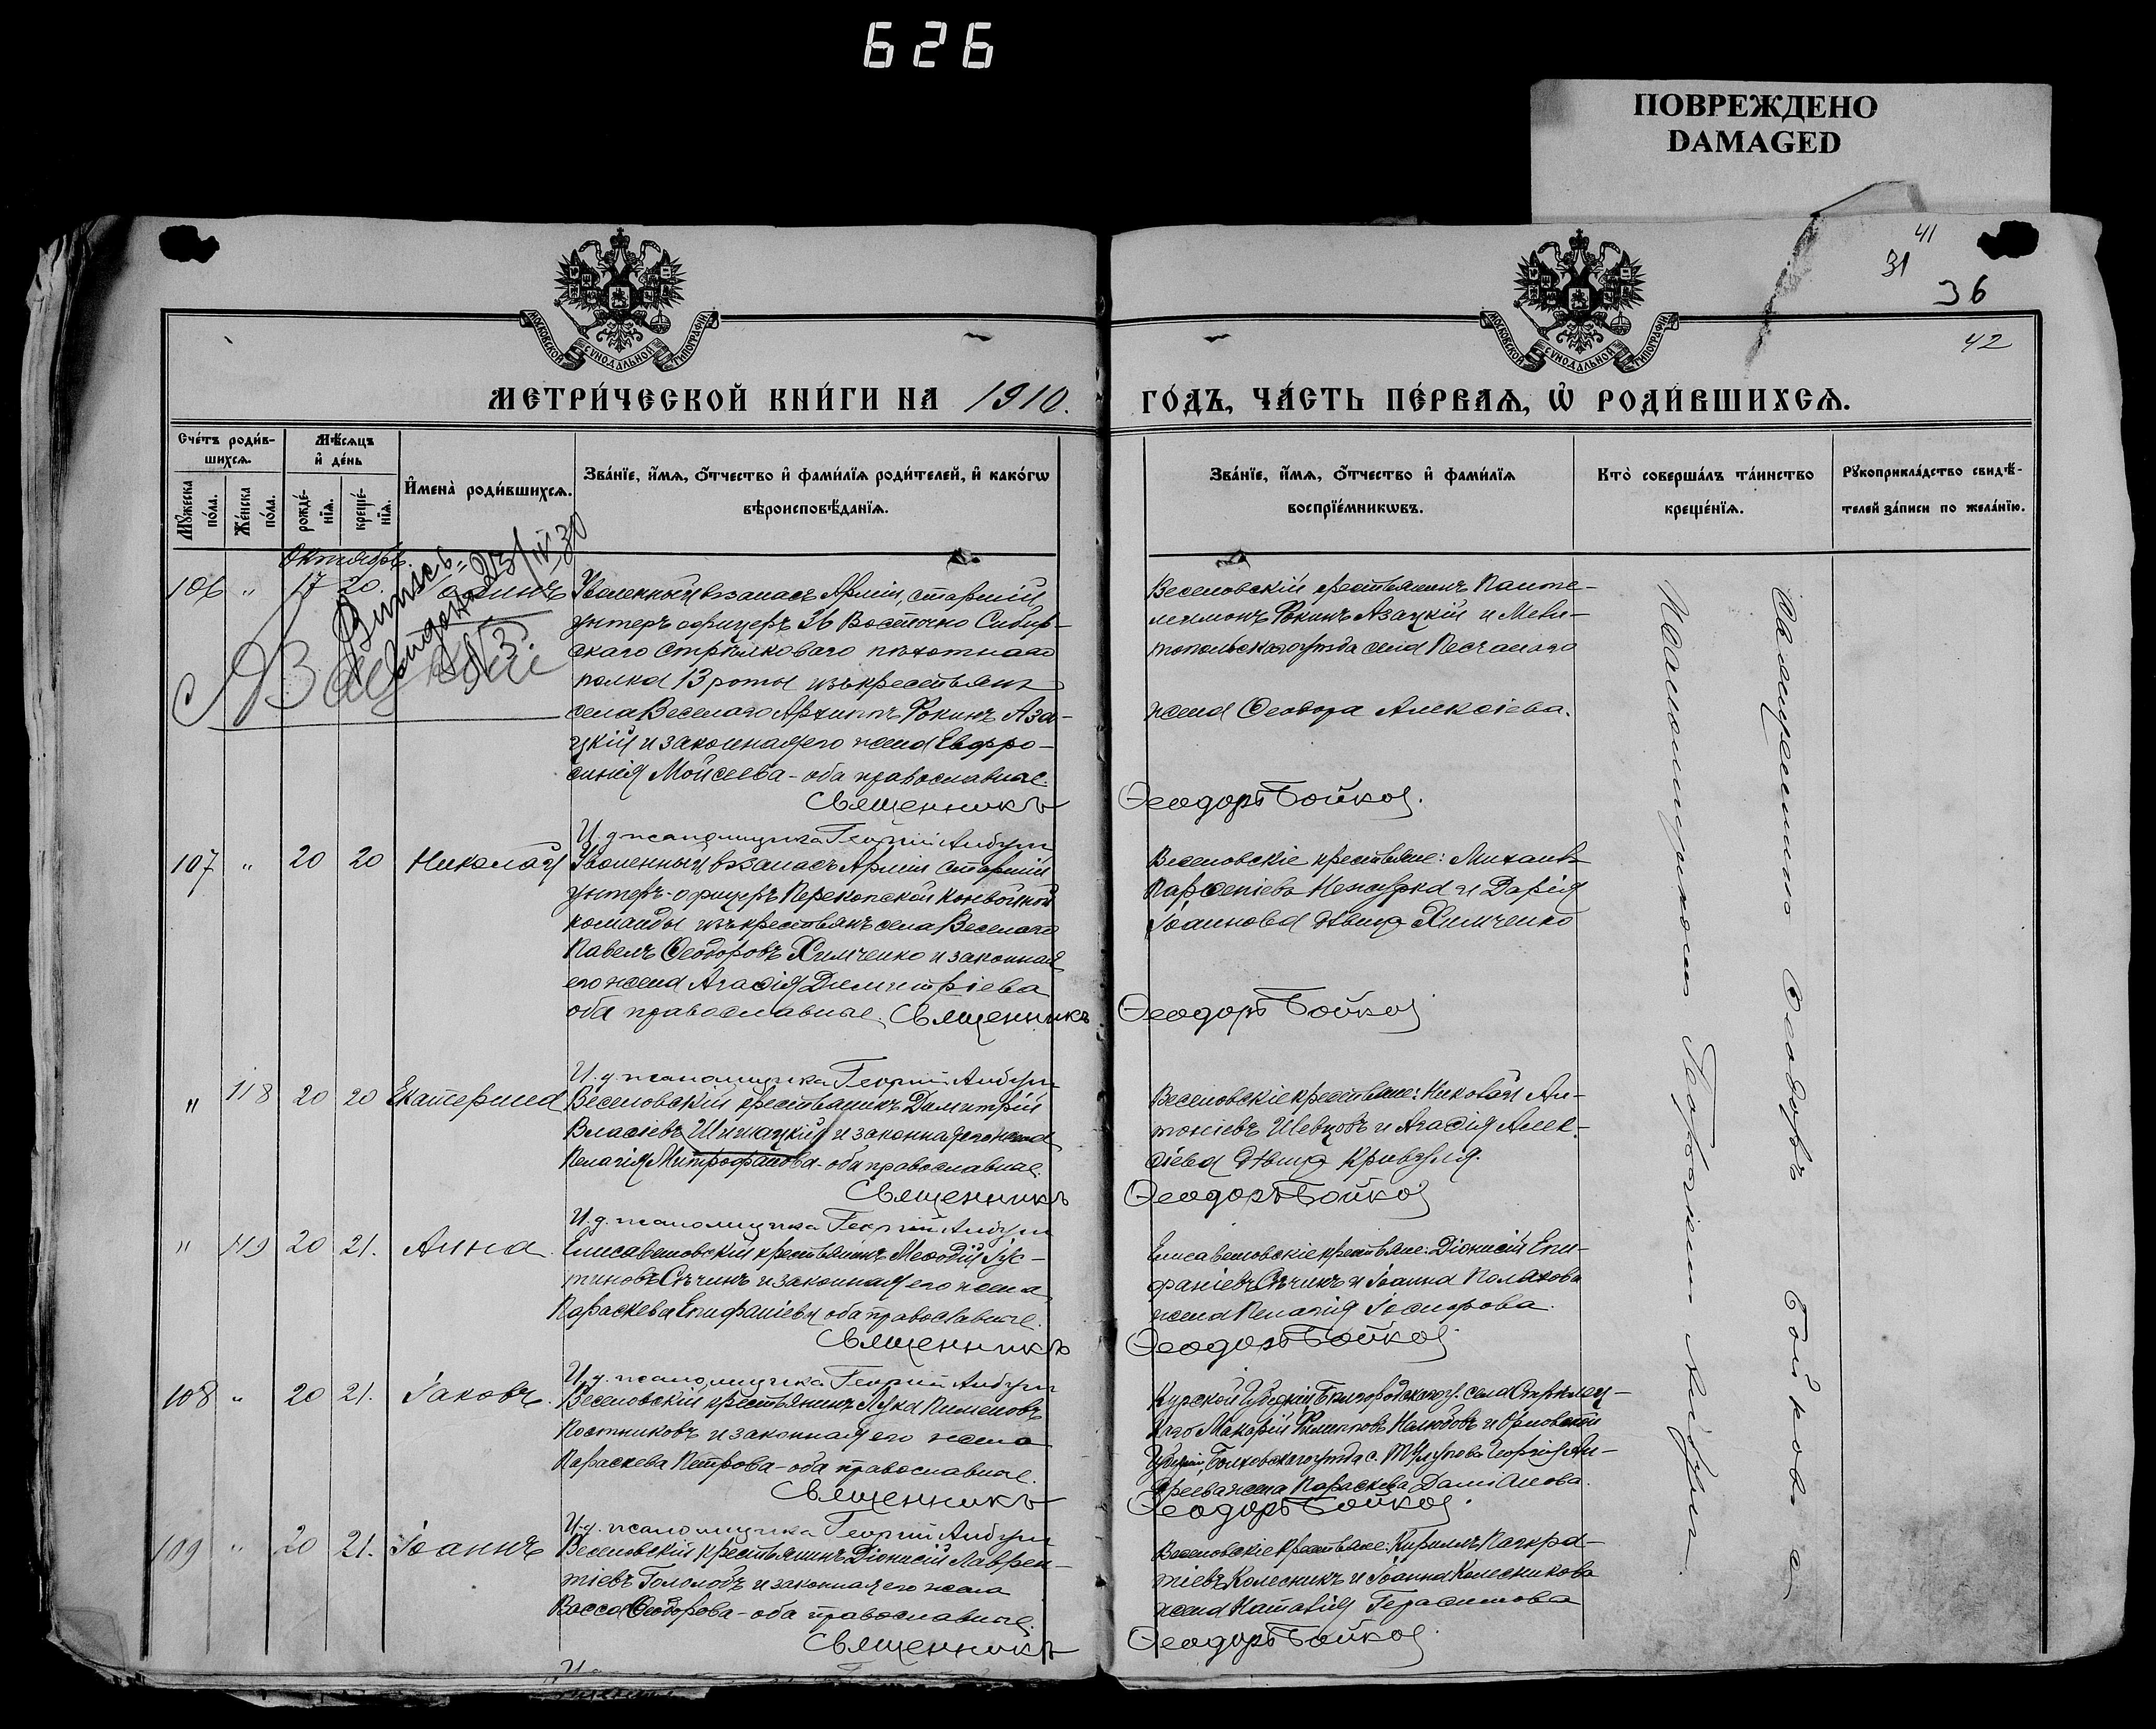 626
ПОВРЕЖДЕНО
DAMAGED
41
31
36
42
МОСКОВСКОЙ СУНОДАЛЬНОЙ ТИПОГРАФІИ
МОСКОВСКОЙ СУНОДАЛЬНОЙ ТИПОГРАФІИ
МЕТРИ́ЧЕСКОЙ КНИ́ГИ НА 1910.
ГО́ДЪ, ЧА́СТЬ ПЕ́РВАѦ, Ѡ РОДИ́ВШИХСѦ.
Сче́тъ роди́в-
шихсѧ.
Мꙋ́жеска по́ла.
Же́нска по́ла.
Мѣ́сѧцъ
и҆ де́нь
рожде́-
нїѧ.
креще́-
нїѧ.
И҆мена̀ роди́вшихсѧ.
Зва́нїе, и҆́мѧ, ѻ҆́тчество и҆ фами́лїѧ роди́телей, и҆ како́гѡ
вѣроисповѣ́данїѧ.
Зва́нїе, и҆́мѧ, ѻ҆́тчество и҆ фами́лїѧ
воспрїе́мникѡвъ.
Кто̀ соверша́лъ та́инство
креще́нїѧ.
Рꙋкоприкла́дство свидѣ́-
телей за́писи по жела́нїю.
Октябрь.
106 " 17 20.
Выпись
выдана 23/IV 30
Уволенный въ запасъ Арміи, старшій
унтеръ офицеръ 36 Восточно Сибир-
скаго Стрѣлковаго пѣхотнаго
полка 13 роты изъ крестьянъ
села Веселаго Архипъ Фокинъ Аза-
цкій и законная его жена Евфро-
синія Моисеева - оба православные.
Священникъ
Веселовскій крестьянинъ Панте-
леимонъ Фокинъ Азацкій и Мели-
топольскаго уѣзда села Песчанаго
жена Ѳеодора Алексіева.
Ѳеодоръ Бойко
И. д. псаломщика Георгій
107 " 20 20 Николай
Уволенный въ запасъ Арміи старшій
унтеръ-офицеръ Перекопской конвойной
команды изъ крестьянъ села Веселаго
Павелъ Ѳеодоровъ Химченко и законная
его жена Агаѳія Димитріева
оба православные. Священникъ
Веселовскіе крестьяне: Михаилъ
Парѳеніевъ и Дарія
Іоаннова дѣвица Химченко
Ѳеодоръ Бойко
И. д. псаломщика Георгій
" 118 20 20 Екатерина
Веселовскій крестьянинъ Димитрій
Власіевъ и законная его жена
Пелагія Митрофанова - оба православные.
Священникъ
Веселовскіе крестьяне: Николай Ан-
тоніевъ Шевцовъ и Агаѳія Алек-
сіева дѣвица
Ѳеодоръ Бойко
И. д. псаломщика Георгій
" 119 20 21. Анна
Елисаветовскій крестьянинъ Меѳодій Іус-
тиновъ Сѣчинъ и законная его жена
Параскева Епифаніева оба православные.
Священникъ
Елисаветовскіе крестьяне: Діонисій Епи-
фаніевъ Сѣчинъ и Іоанна Полахова
жена Пелагія Іосифова.
Ѳеодоръ Бойко
И. д. псаломщика Георгій
108 " 20 21. Іаковъ.
Веселовскій крестьянинъ Лука Пименовъ
Постниковъ и законная его жена
Параскева Петрова - оба православные.
Священникъ
Курской губерніи, Бѣлгородскаго у. села
Макарій и Орловской
губерніи, Болховскаго уѣзда с. Георгія Ан-
дреева жена Параскева Даміанова.
Ѳеодоръ Бойко
И. д. псаломщика Георгій
109 " 20 21. Іоаннъ
Веселовскій крестьянинъ Діонисій Лаврен-
тіевъ Гололобъ и законная его жена
Васса Ѳеодорова - оба православные.
Священникъ
Веселовскіе крестьяне: Кириллъ Панкра-
тіевъ Колесникъ и Іоанна Колесникова
жена Наталія Герасимова
Ѳеодоръ Бойко
Священникъ Ѳеодоръ Бойко съ
псаломщикомъ Георгіемъ